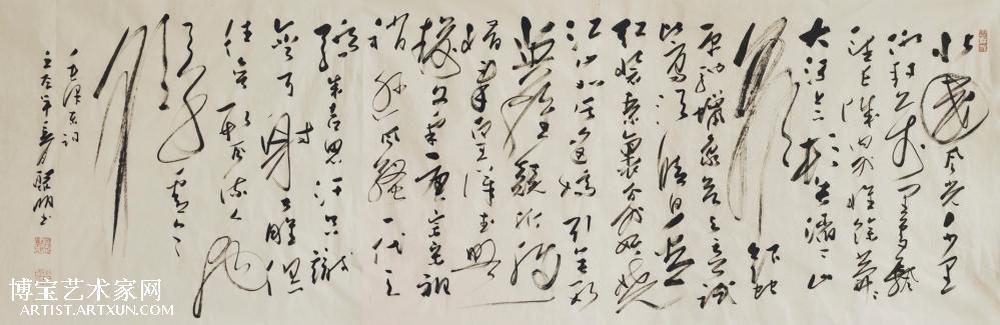 北国风光千里
冰封万里雪飘
望长城内外惟余莽莽
大河上下顿失滔滔山
舞银蛇
原驰蜡象欲与天公试
比高须晴日看
红装素裹分外妖娆
江山如此多娇引无数
英雄竞折腰
惜秦皇汉武略
输文采唐宗宋祖
稍逊风骚一代天
骄成吉思汗只识
弯弓射大雕俱
往矣数风流人物
还看今
朝
毛泽东词
博宝艺术家网
ARTIST.ARTXUN.COM